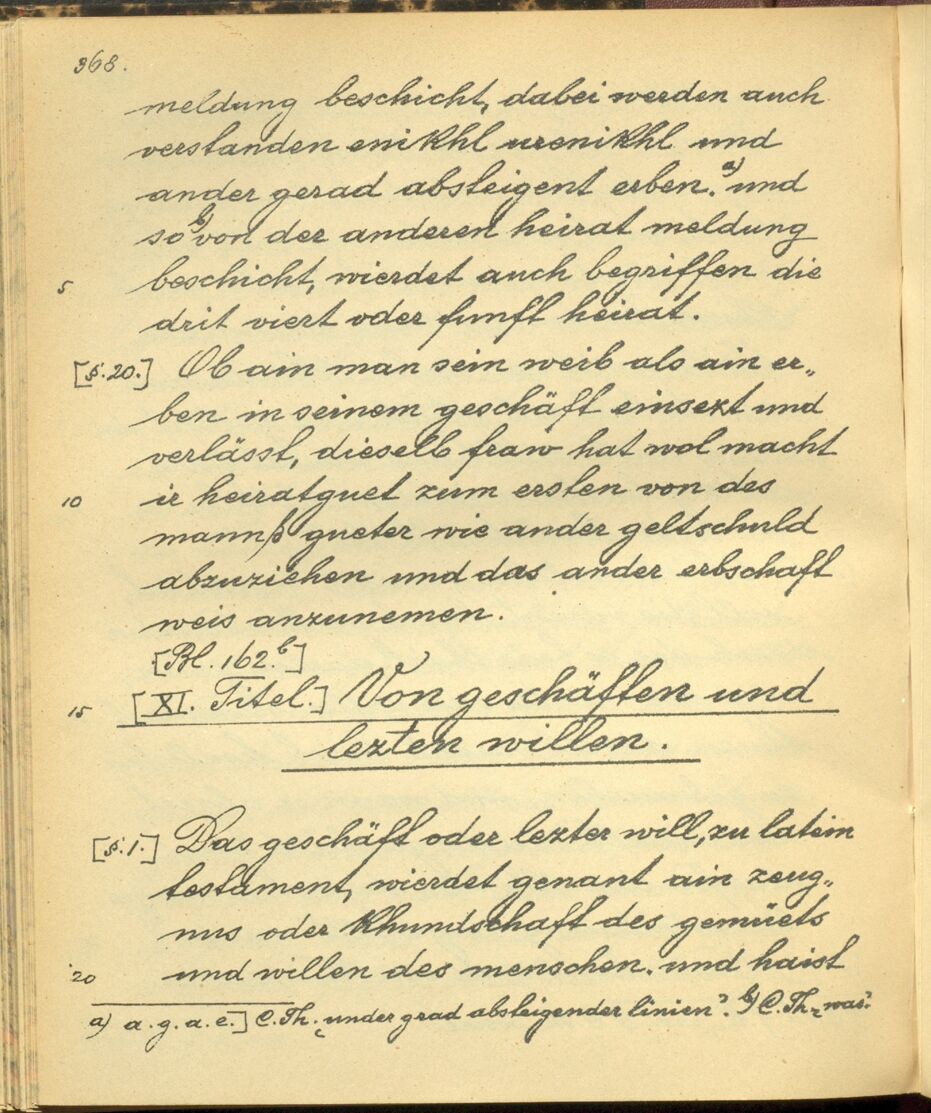 368.
meldung beschicht, dabei werden auch
verstanden enikhl urenikhl und
ander gerad absteigent erben.a) und
so b) von der anderen heirat meldung
5 beschicht, wierdet auch begriffen die
drit viert oder funft heirat.
[§. 20.] Ob ain man sein weib als ain er„
ben in seinem geschäft einsezt und
verlässt, dieselb fraw hat wol macht
10 ir heiratguet zum ersten von des
mannß gueter wie ander geltschuld
abzuziehen und das ander erbschaft
weis anzunemen.
[Bl. 162.b]
15 [XI. Titel.] Von geschäften und
lezten willen.
[§. 1.] Das geschäft oder lezter will, zu latein
testament, wierdet genant ain zeug„
nus oder khundschaft des gemüets
20 und willen des menschen. und haist
a) a. g. a. e.] C. Th. „under grad absteigender linien”. b) C. Th. „was”.